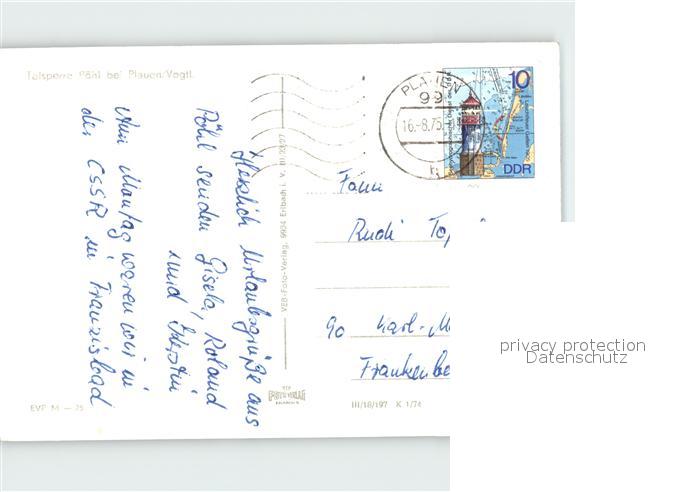 Talsperre Pöhl bei Plauen/Vogtl.
Herzlich Urlaubsgrüße aus
Pöhl senden Gisela, Roland
und Kerstin
Am Montag waren wir in
der CSSR in Franzisbad
VEB-Foto-Verlag, 9934 Erlbach i. V.
EVP M — 25
III/18/197 K 1/74
PLAUEN
99
16.-8.75
10
DDR
Fam
Rudi
90 Karl-M
Frankenbe
privacy protection
Datenschutz